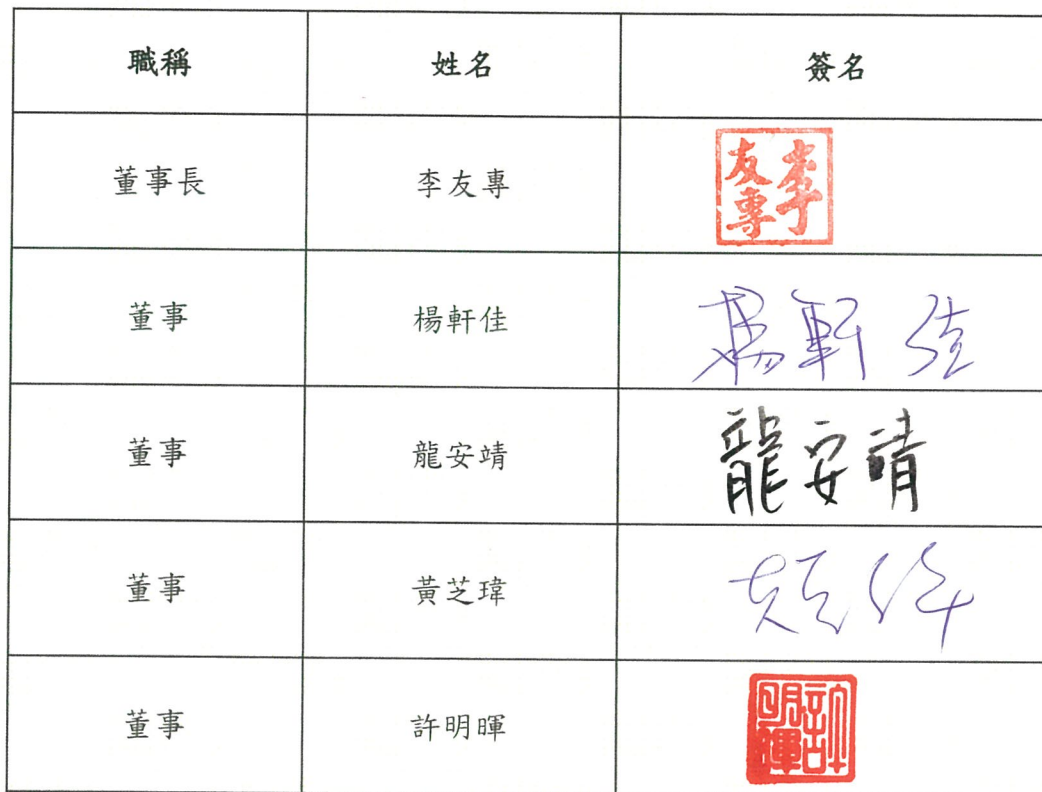 職稱 姓名 簽名
董事長 李友專 李友專
董事 楊軒佳 楊軒佳
董事 龍安靖 龍安靖
董事 黃芝瑋
董事 許明暉 許明暉